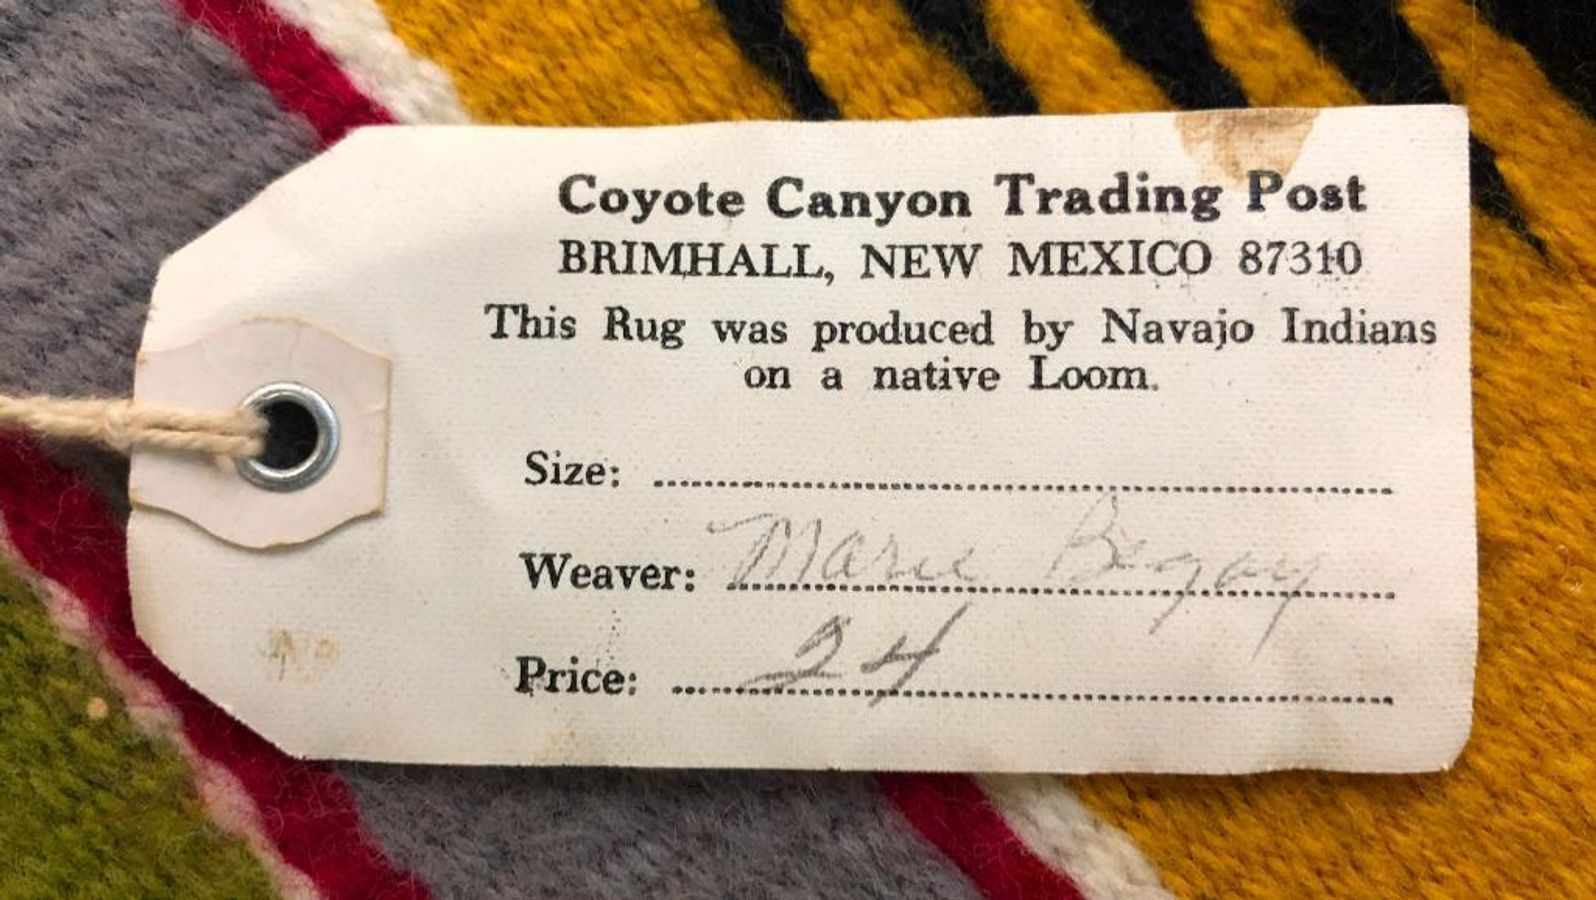 Coyote Canyon Trading Post
BRIMHALL, NEW MEXICO 87310
This Rug was produced by Navajo Indians
on a native Loom.
Size: ........................................
Weaver: Marie Begay
Price: 24